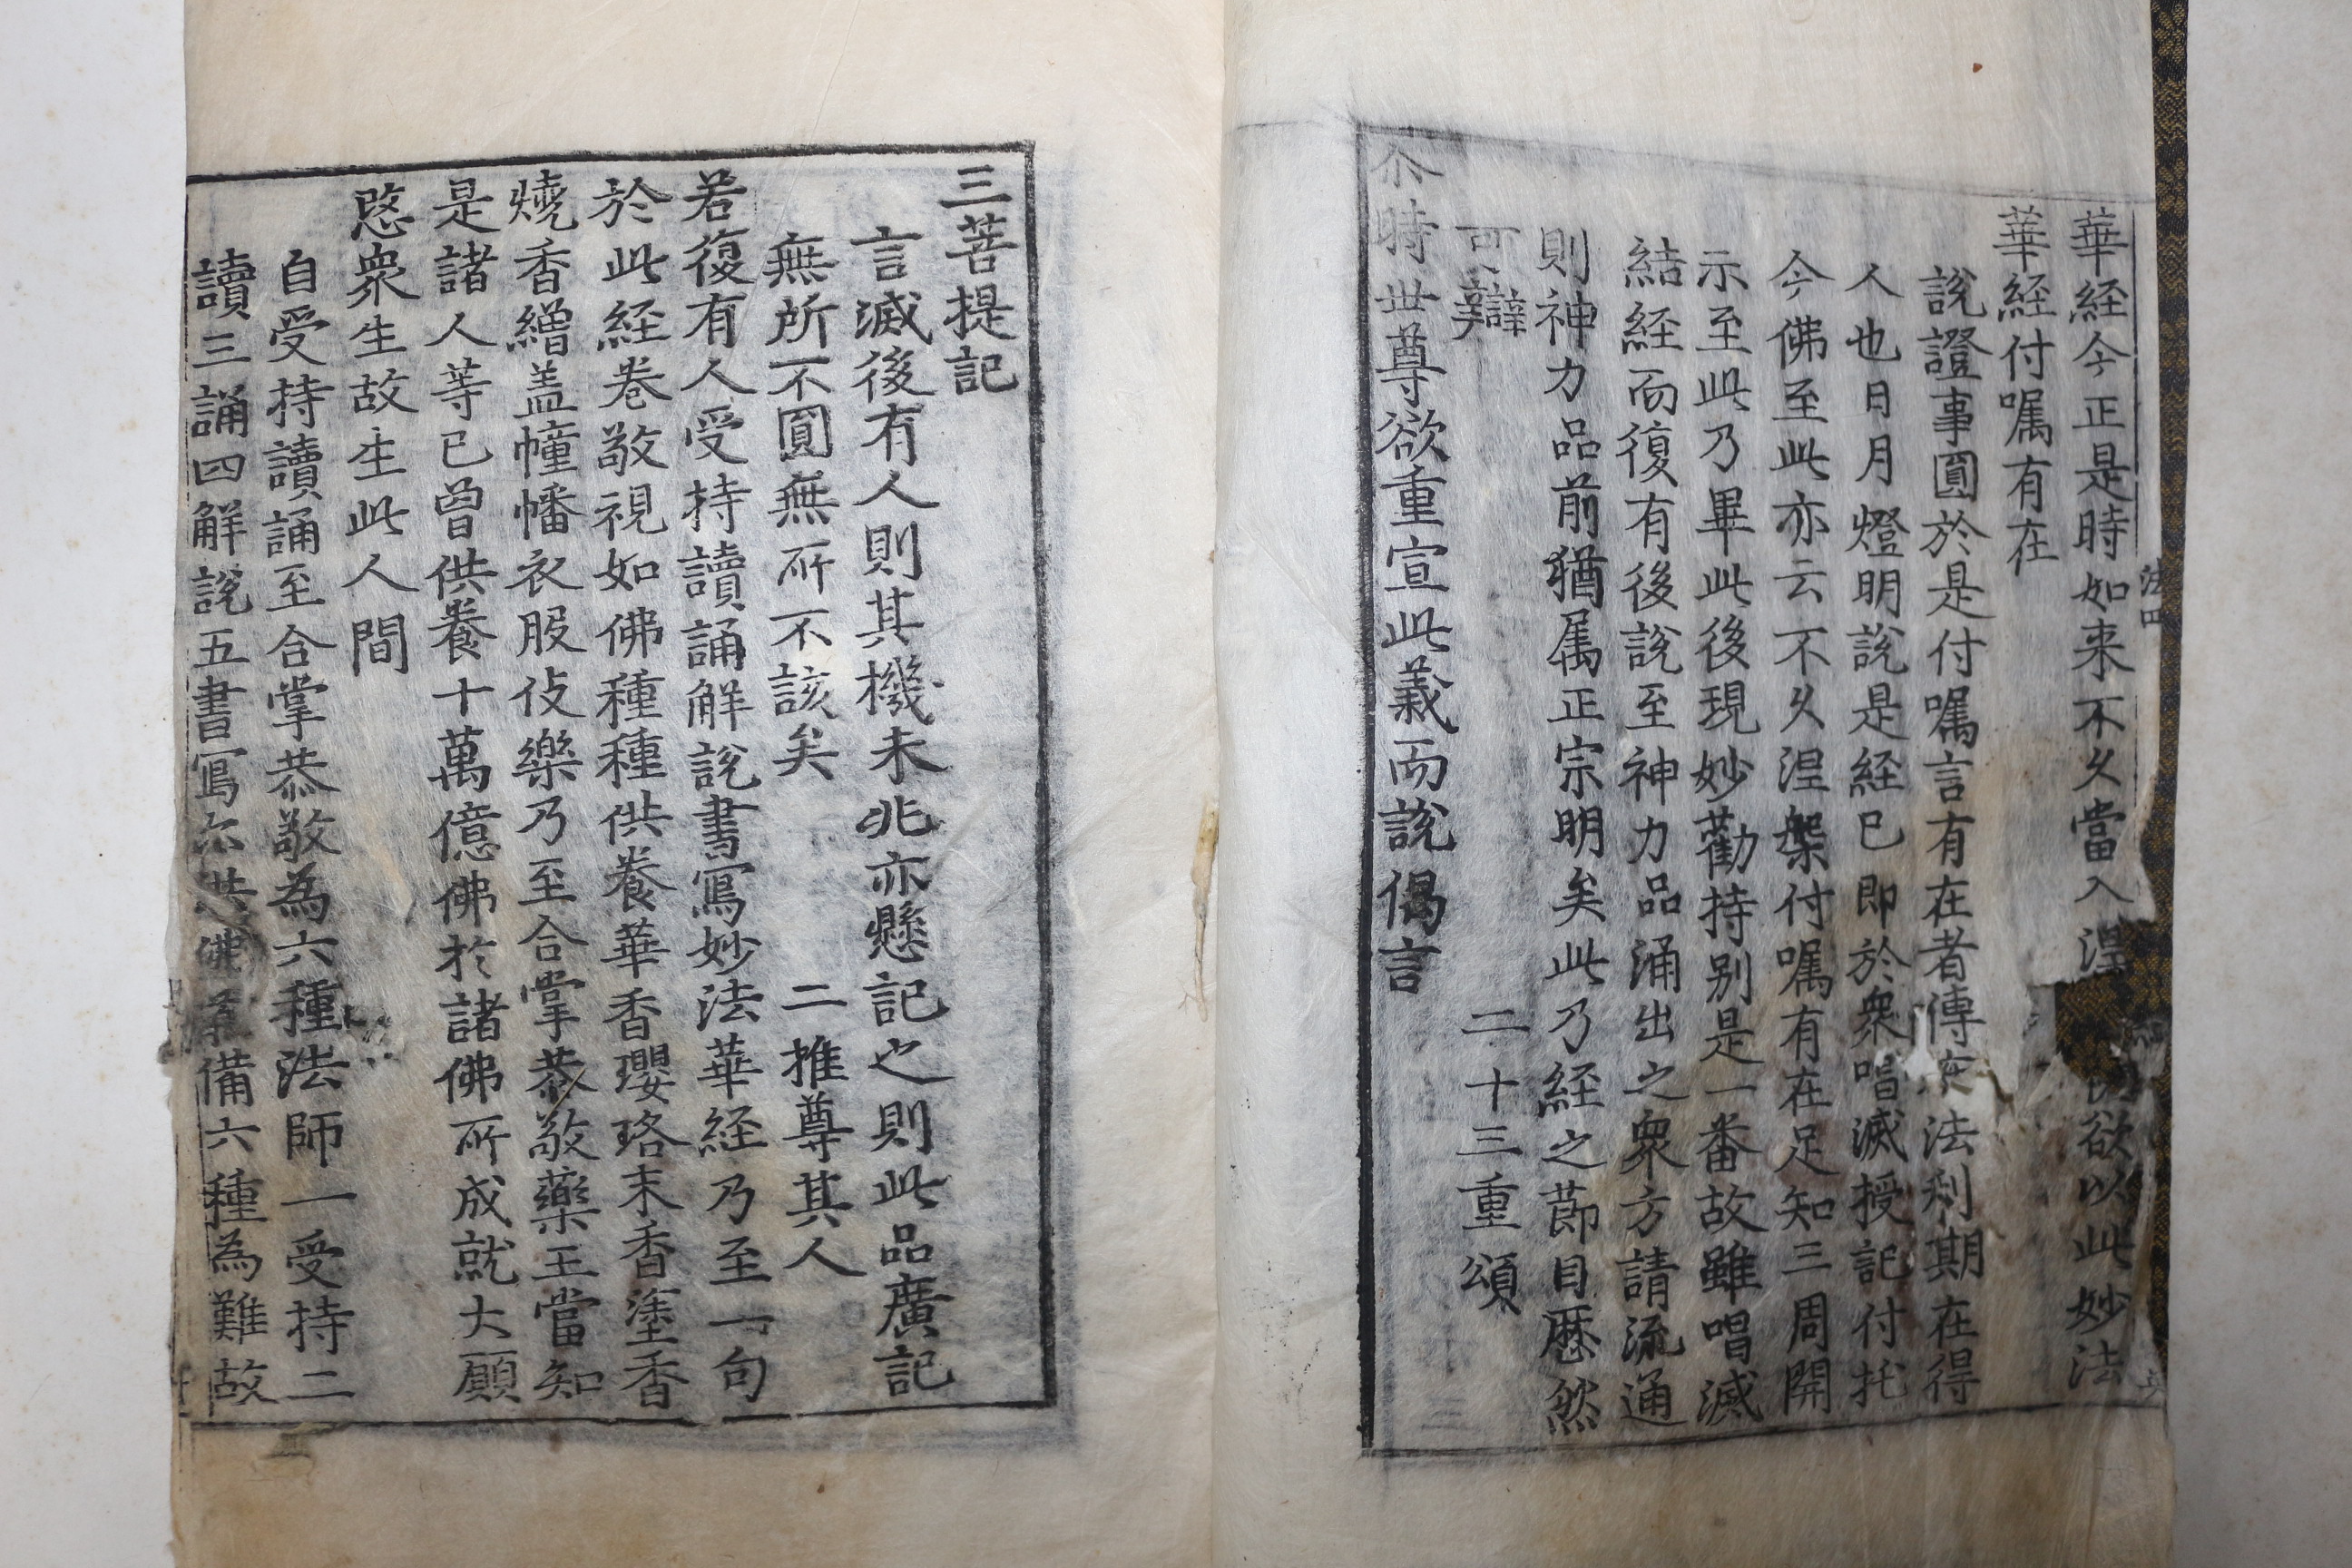 華経今正是時如来不久當入涅欲以此妙法
華経付嘱有在
說證事圓於是付嘱言有在者傳法利期在得
人也日月燈明說是経已即於衆唱滅授記付托
今佛至此亦云不久涅槃付嘱有在足知三周開
示至此乃畢此後現妙勸持别是一番故雖唱滅
結経而復有後說至神力品涌出之衆方請流通
則神力品前猶属正宗明矣此乃経之莭目歴然
可辯 二十三重頌
尒時世尊欲重宣此義而說偈言
法四
三菩提記
言滅後有人則其機未兆亦懸記之則此品廣記
無所不圓無所不該矣 二推尊其人
若復有人受持讀誦解說書寫妙法華経乃至一句
於此経卷敬視如佛種種供養華香瓔珞末香塗香
燒香繒盖幢幡衣服伎樂乃至合掌恭敬藥王當知
是諸人等已曾供養十萬億佛於諸佛所成就大願
愍衆生故生此人間
自受持讀誦至合掌恭敬為六種法師一受持二
讀三誦四解說五書寫六供佛備六種為難故